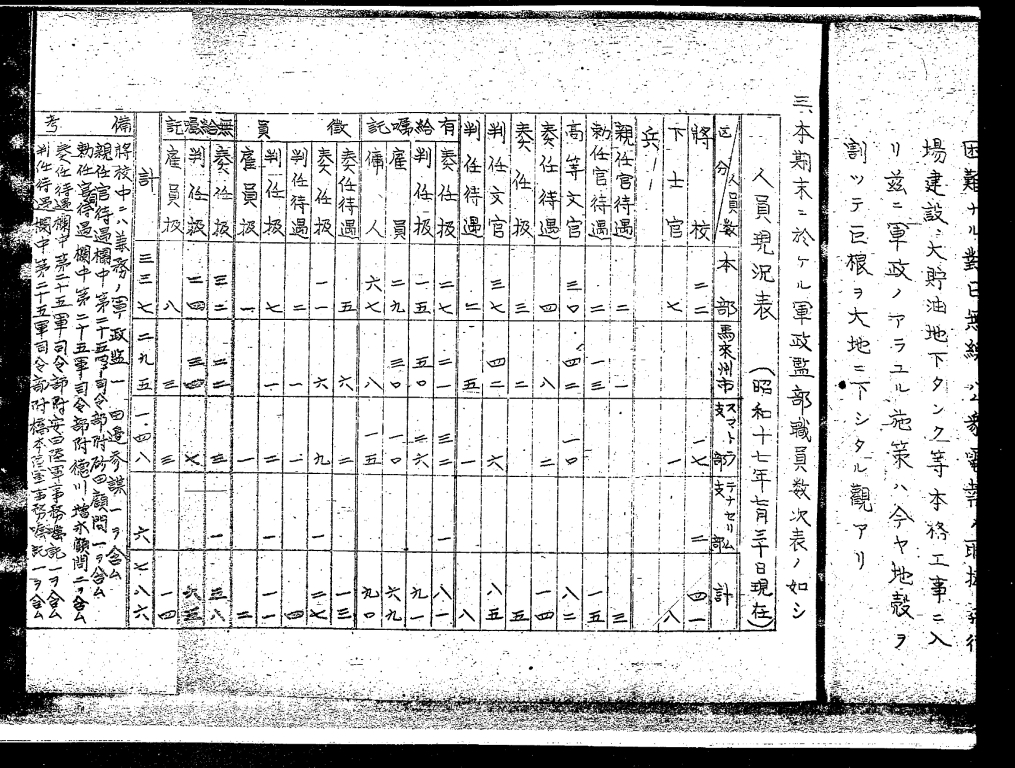 困難ナル對日無線、公衆電報ノ取扱、發行
場建設、大貯油地下タンク等本格工事ニ入
リ茲ニ軍政ノアラユル施策ハ今ヤ地殻ヲ
割ツテ巨根ヲ大地ニ下シタル觀アリ
三本期末ニ於ケル軍政監部職員数次表ノ如シ
人員現況表(昭和十七年七月三十日現在)
区分/人員数 本部 馬來州市 スマトラ支部 テナセリム支部 計
將校 二二 一七 二 四一
下士官 七 一 八
兵
親任官待遇 二 一 三
勅任官待遇 二 一三 一五
高等文官 三〇 四二 一〇 八二
奏任待遇 四 八 二 一四
奏任扱 三 二 五
判任文官 三七 四二 六 八五
判任待遇 二 五 一 八
有給嘱託 奏任扱 二七 二一 三二 一 八一
判任扱 一五 五〇 二六 九一
雇員 二九 三〇 一〇 六九
傭人 六七 八 一五 九〇
徴員 奏任待遇 五 六 二 一三
奏任扱 一一 六 九 一 二七
判任待遇 二 一 一 四
判任扱 七 一 二 一 一一
雇員 一 一 二
無給嘱託 奏任扱 三二 二二 三 一 三八
判任扱 二四 三四 七 六三
雇員扱 八 三 三 一四
計 三三七 二九五 一四八 六 七八六
備考
將校中ニハ兼務ノ軍政監一 田邊参謀一ヲ含ム
親任官待遇欄中第二十五軍司令部附砂田顧問一ヲ含ム
勅任官待遇欄中第二十五軍司令部附徳川、増永顧問二ヲ含ム
奏任待遇欄中第二十五軍司令部附安田陸軍事務嘱託一ヲ含ム
判任待遇欄中第二十五軍司令部附橋本陸軍事務嘱託一ヲ含ム